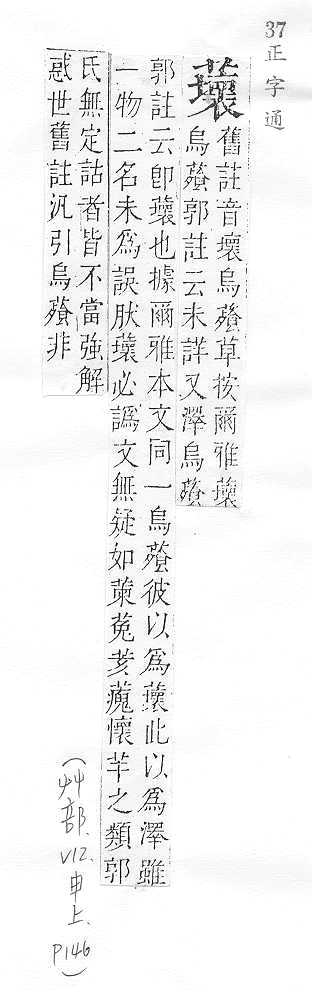 37正字通
蘾
舊註音壞烏蕵草按爾雅蘾
烏蕵郭註云未詳又澤烏蕵
郭註云卽蘾也據爾雅本文同一烏蕵彼以爲蘾此以爲澤雖
一物二名未爲誤肰蘾必譌文無疑如菄菟荄蘾懷芉之類郭
氏無定詁者皆不當強解
惑世舊註汎引烏蕵非
(艸部、V12、申上、P146)